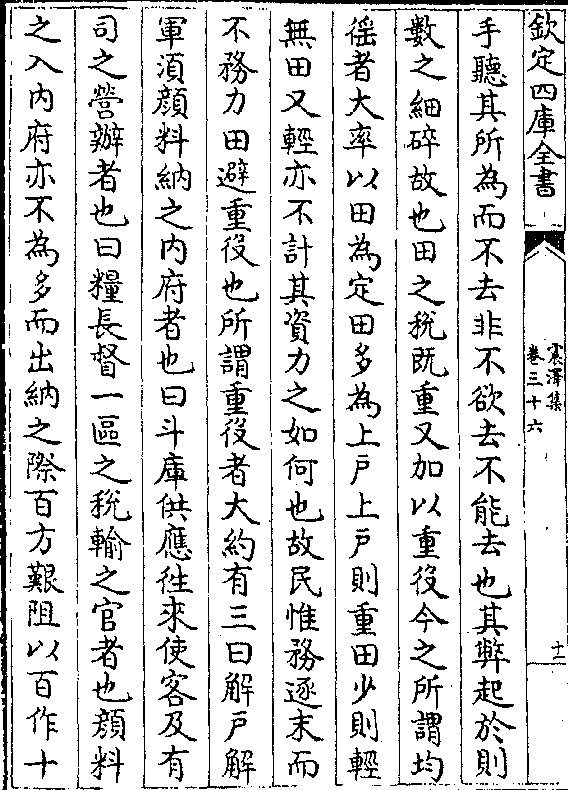 欽定四庫全書
震澤集
卷三十六
十一
手聽其所為而不去非不欲去不能去也其弊起於則
數之細碎故也田之稅既重又加以重役今之所謂均
徭者大率以田為定田多為上戶上戶則重田少則輕
無田又輕亦不計其資力之如何也故民惟務逐末而
不務力田避重役也所謂重役者大約有三曰解戶解
軍須顔料納之内府者也曰斗庫供應徃來使客及有
司之營辦者也曰糧長督一區之稅輸之官者也顔料
之入内府亦不為多而出納之際百方艱阻以百作十